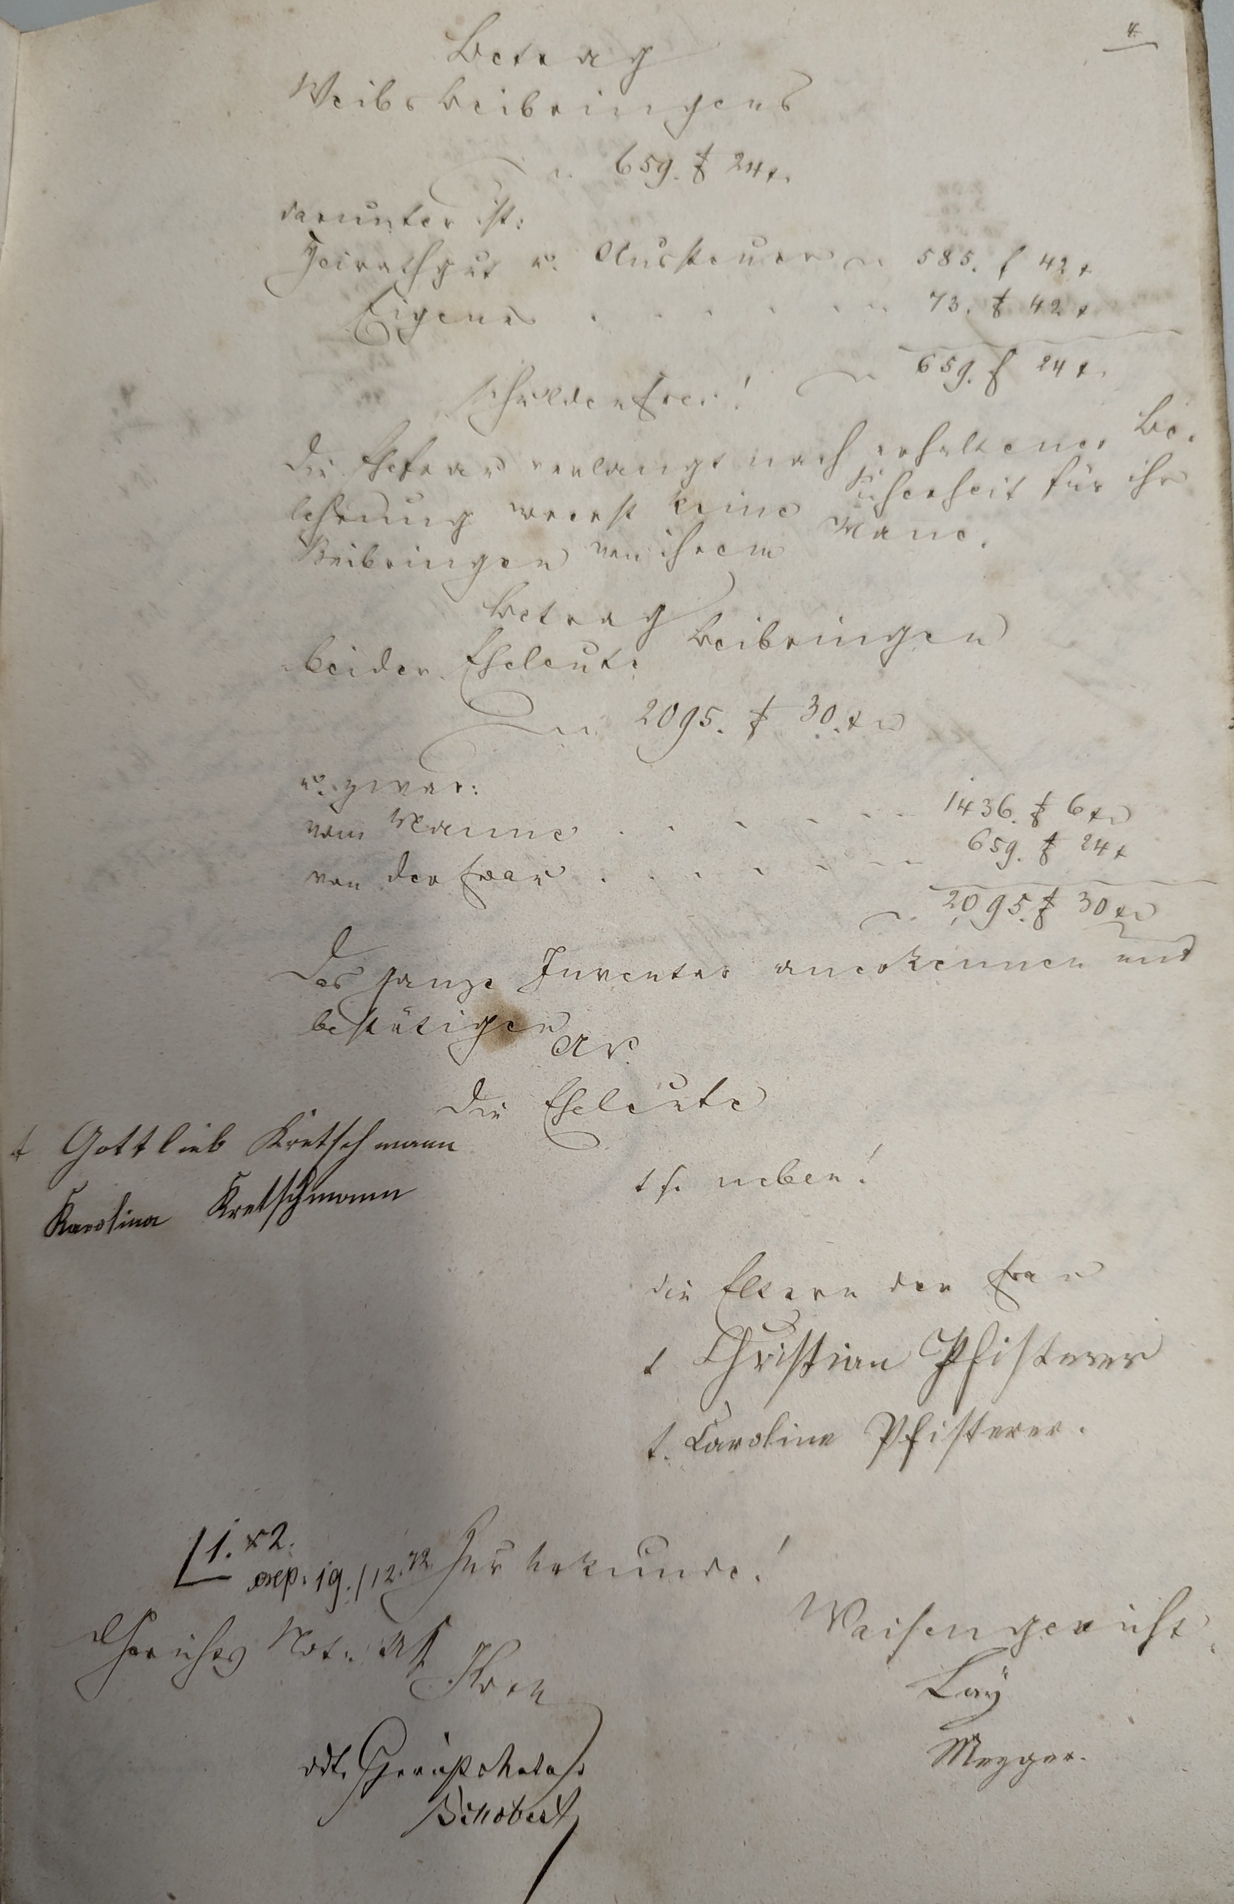 4.
Betrag
Weibsbeibringens
659. f 24 x.
darunter ist:
Heirathgut u. Aussteuer 585. f 42 x
Eigenes . . . . . . 73. f 42 x
659. f 24 x.
schuldenfrei!
Die Ehefrau verlangt nach erhaltener Be-
lehrung vorerst keine Sicherheit für ihr
Beibringen von ihrem Mane.
Betrag
beider Eheleute Beibringen
2095. f 30. x
u. zwar:
vom Manne . . . . . . 1436. f 6 x
von der Frau . . . . . . 659. f 24 x
2095. f 30 x
Das ganze Inventar anerkennen und
bestätigen
Die Eheleute
t Gottlieb Kretschmann
Karolina Kretschmann
t s. neben!
die Eltern der Frau
t Christian Pfisterer
t. Caroline Pfisterer.
1. x 2.
exp. 19./12.72 Zur Urkunde!
Waisengericht
Gerichts Not.
Lay
Mezger.
vdt. Gerichtsnotar
Schobert